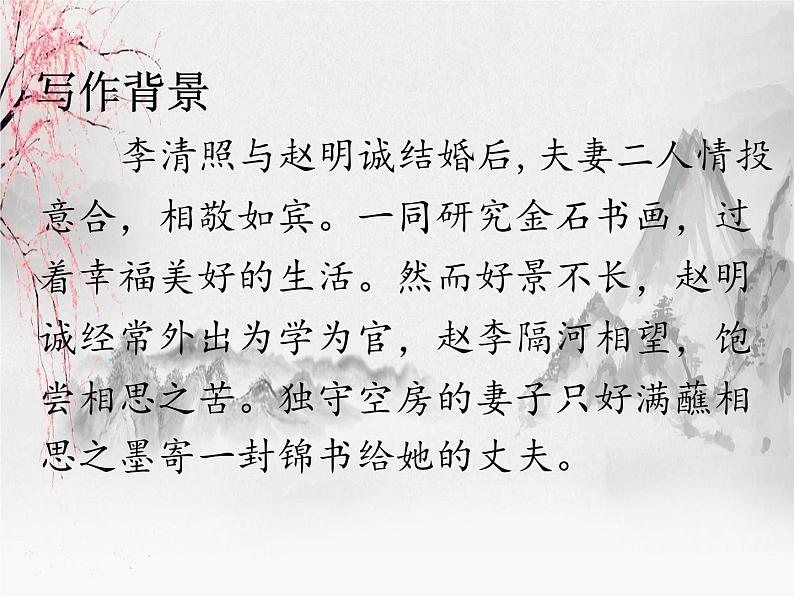 写作背景
李清照与赵明诚结婚后,夫妻二人情投
意合，相敬如宾。一同研究金石书画，过
着幸福美好的生活。然而好景不长，赵明
诚经常外出为学为官，赵李隔河相望，饱
尝相思之苦。独守空房的妻子只好满蘸相
思之墨寄一封锦书给她的丈夫。